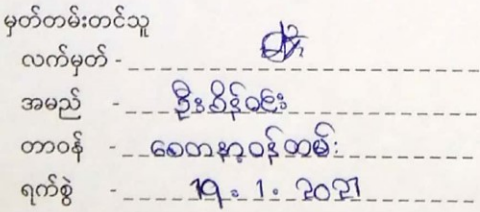 မှတ်တမ်းတင်သူ
လက်မှတ် -
အမည် - ဦးစိန်ဝင်း
တာဝန် - စေတနာ့ဝန်ထမ်း
ရက်စွဲ - 19.1.2021